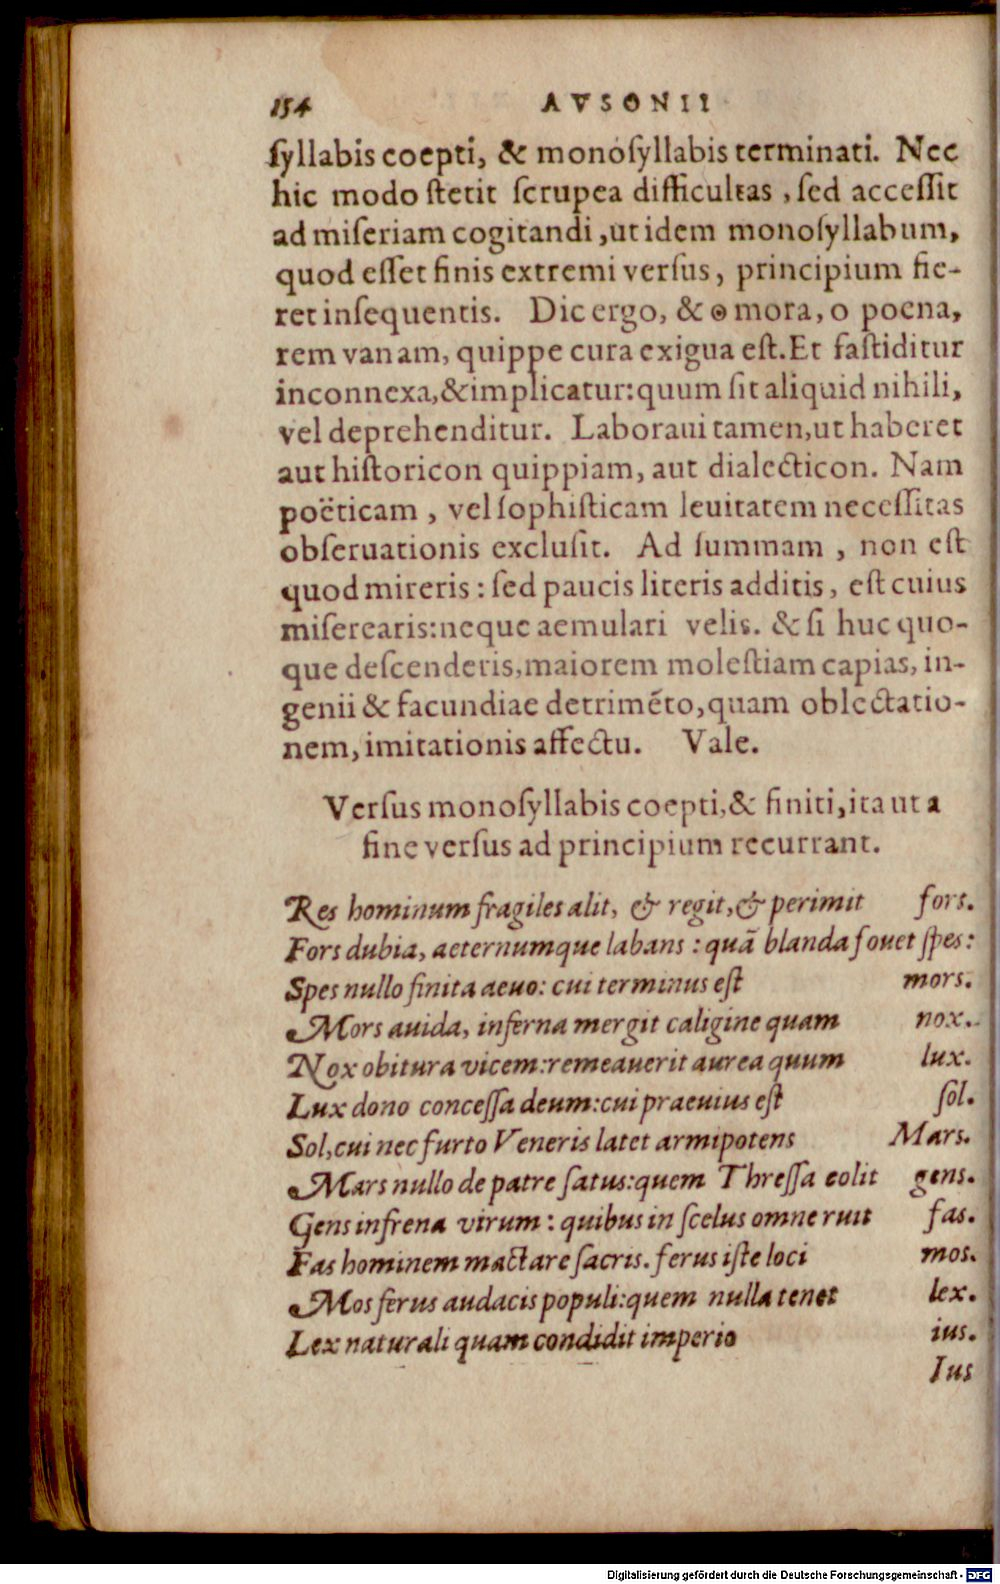 154 AVSONII
ſyllabis coepti, & monoſyllabis terminati. Nec
hic modo ſtetit ſcrupea difficultas, ſed acceſſit
ad miſeriam cogitandi, ut idem monoſyllabum,
quod eſſet finis extremi verſus, principium fie-
ret inſequentis. Dic ergo, & o mora, o poena,
rem vanam, quippe cura exigua eſt. Et faſtiditur
inconnexa, & implicatur: quum ſit aliquid nihili,
vel deprehenditur. Laboraui tamen, ut haberet
aut hiſtoricon quippiam, aut dialecticon. Nam
poëticam, vel ſophiſticam leuitatem neceſſitas
obſeruationis excluſit. Ad ſummam, non eſt
quod mireris: ſed paucis literis additis, eſt cuius
miſerearis: neque aemulari velis. & ſi huc quo-
que deſcenderis, maiorem moleſtiam capias, in-
genii & facundiae detrimẽto, quam oblectatio-
nem, imitationis affectu. Vale.
Verſus monoſyllabis coepti, & finiti, ita ut a
fine verſus ad principium recurrant.
Res hominum fragiles alit, & regit, & perimit fors.
Fors dubia, aeternumque labans: quã blanda fouet ſpes:
Spes nullo finita aeuo: cui terminus eſt mors.
Mors auida, inferna mergit caligine quam nox.
Nox obitura vicem: remeauerit aurea quum lux.
Lux dono conceſſa deum: cui praeuius eſt ſol.
Sol, cui nec furto Veneris latet armipotens Mars.
Mars nullo de patre ſatus: quem Threſſa colit gens.
Gens infrena virum: quibus in ſcelus omne ruit fas.
Fas hominem mactare ſacris. ferus iſte loci mos.
Mos ferus audacis populi: quem nulla tenet lex.
Lex naturali quam condidit imperio ius.
Ius
Digitalisierung gefördert durch die Deutsche Forschungsgemeinschaft - DFG